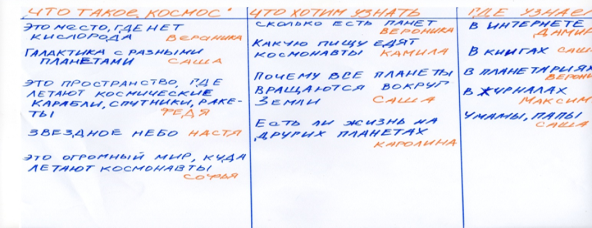 ЧТО ТАКОЕ КОСМОС
ЭТО МЕСТО, ГДЕ НЕТ
КИСЛОРОДА ВЕРОНИКА
ГАЛАКТИКА С РАЗНЫМИ
ПЛАНЕТАМИ САША
ЭТО ПРОСТРАНСТВО, ГДЕ
ЛЕТАЮТ КОСМИЧЕСКИЕ
КАРАБЛИ, СПУТНИКИ, РАКЕ-
ТЫ ФЕДЯ
ЗВЕЗДНОЕ НЕБО НАСТЯ
ЭТО ОГРОМНЫЙ МИР, КУДА
ЛЕТАЮТ КОСМОНАВТЫ
СОФЬЯ
ЧТО ХОТИМ УЗНАТЬ
СКОЛЬКО ЕСТЬ ПАНЕТ
ВЕРОНИКА
КАКУЮ ПИЩУ ЕДЯТ
КОСМОНАВТЫ КАМИЛА
ПОЧЕМУ ВСЕ ПЛАНЕТЫ
ВРАЩАЮТСЯ ВОКРУГ
ЗЕМЛИ САША
ЕСТЬ ЛИ ЖИЗНЬ НА
ДРУГИХ ПЛАНЕТАХ
КАРОЛИНА
ГДЕ УЗНАЕ
В ИНТЕРНЕТЕ
В КНИГАХ САША
В ПЛАНЕТАРИЯХ
ВЕРОНИ
В ЖУРНАЛАХ
МАКСИМ
У МАМЫ, ПАПЫ
САША